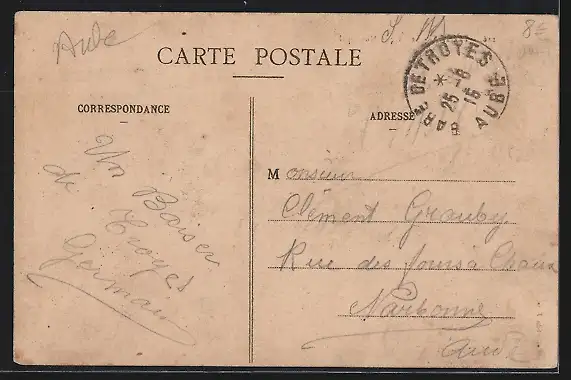 Aube
S. M
8€
CARTE POSTALE
GARE DE TROYES AUBE
* 7-6
25 15
CORRESPONDANCE
ADRESSE
Un Baiser
de Troyes
Germain
Monsieur
Clément Grauby
Rue des fours à Chaux
Narbonne
Aude